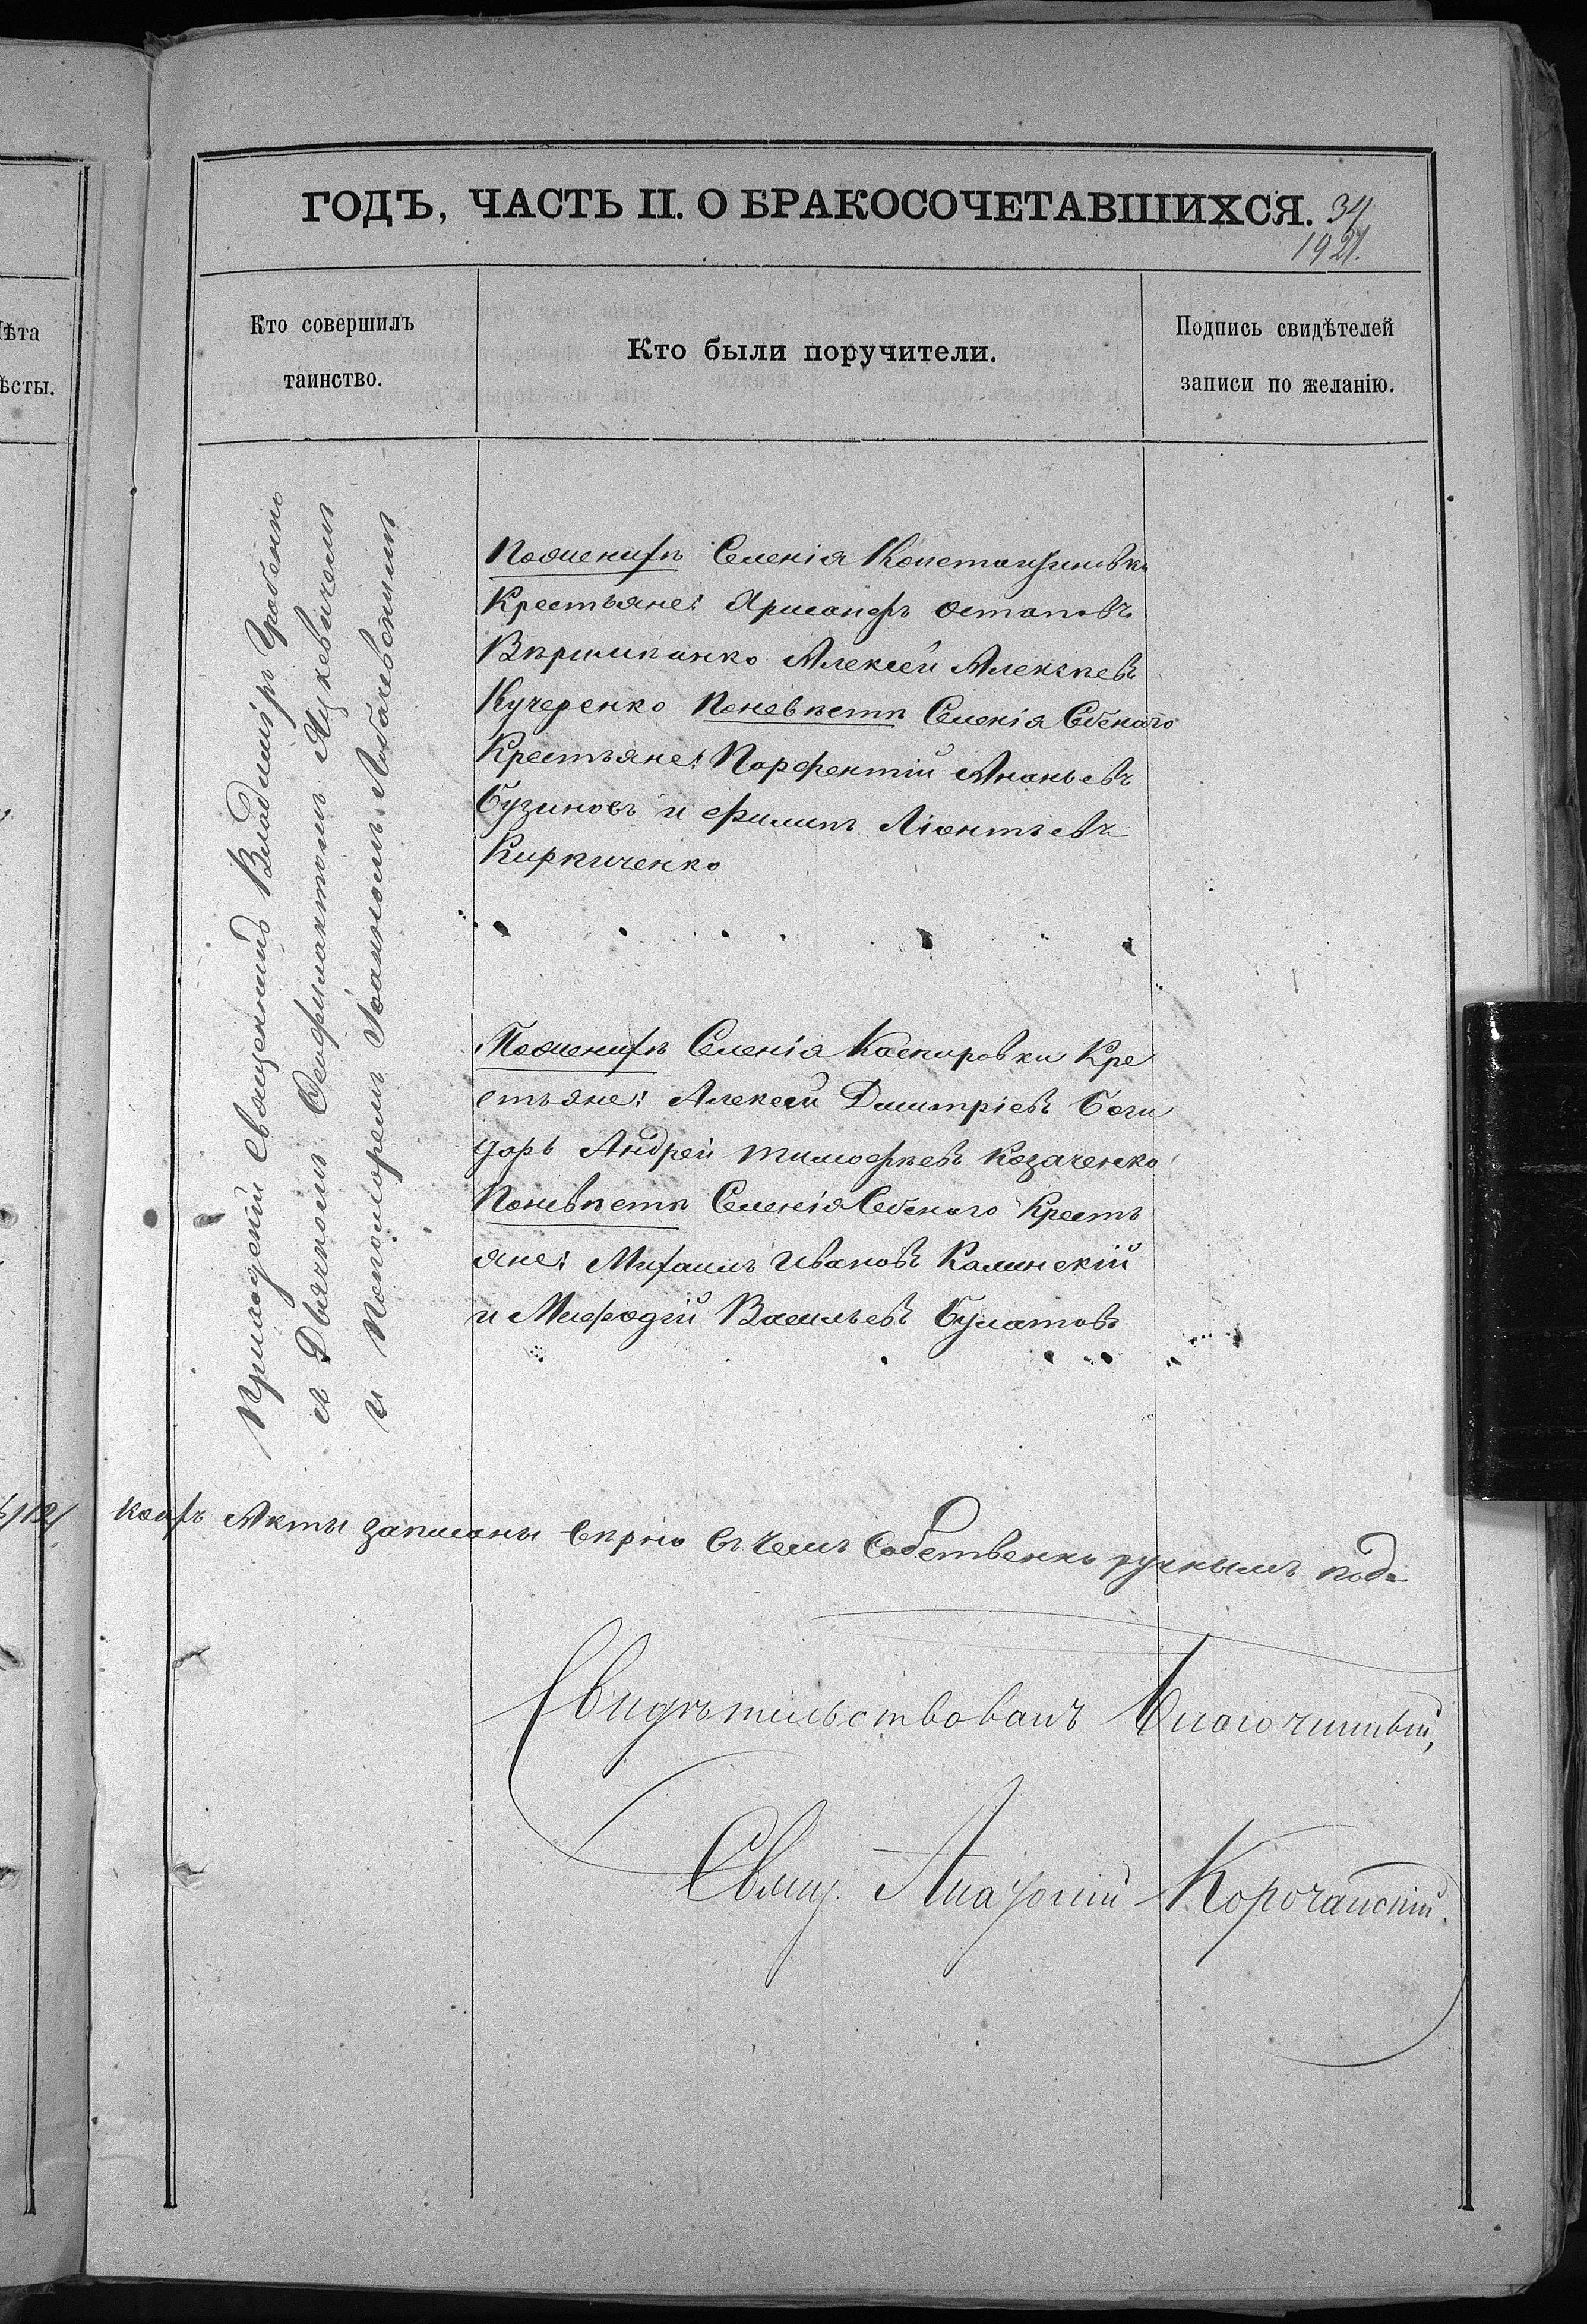 ГОДЪ, ЧАСТЬ II. О БРАКОСОЧЕТАВШИХСЯ. 34
1921.
Кто совершилъ
таинство.
Кто были поручители.
Подпись свидѣтелей
записи по желанію.
лѣта
ѣсты.
Приходскій Священникъ Владиміръ Гробенко
и Дьячкомъ Феофилактомъ Яцкевичемъ
и Пономоремъ Іоанномъ Любачевскимъ
Поженихѣ Селенія Константиновки
Крестьяне: Остаповъ
Алексѣй Алексѣевъ
Кучеренко Поневѣстѣ Селенія Сбскаго
Крестьяне: Порфентій Ананьевъ
Бузиновъ и Филипъ Ліонтьевъ
Кирпиченко
Поженихѣ Селенія Каспировки Кре
стьяне: Алексѣй Дмитріевъ
Андрей Тимофѣевъ Козаченко
Поневѣстѣ Селенія Сбскаго Кресть
яне: Михаилъ Ивановъ Калинскій
и Мифодій Васильевъ Булатовъ
Акты записаны вѣрно въ чемъ Собственно ручнымъ под=
Свидѣтельствовалъ Благочинный,
Свящ. Анатолій Корочанскій.